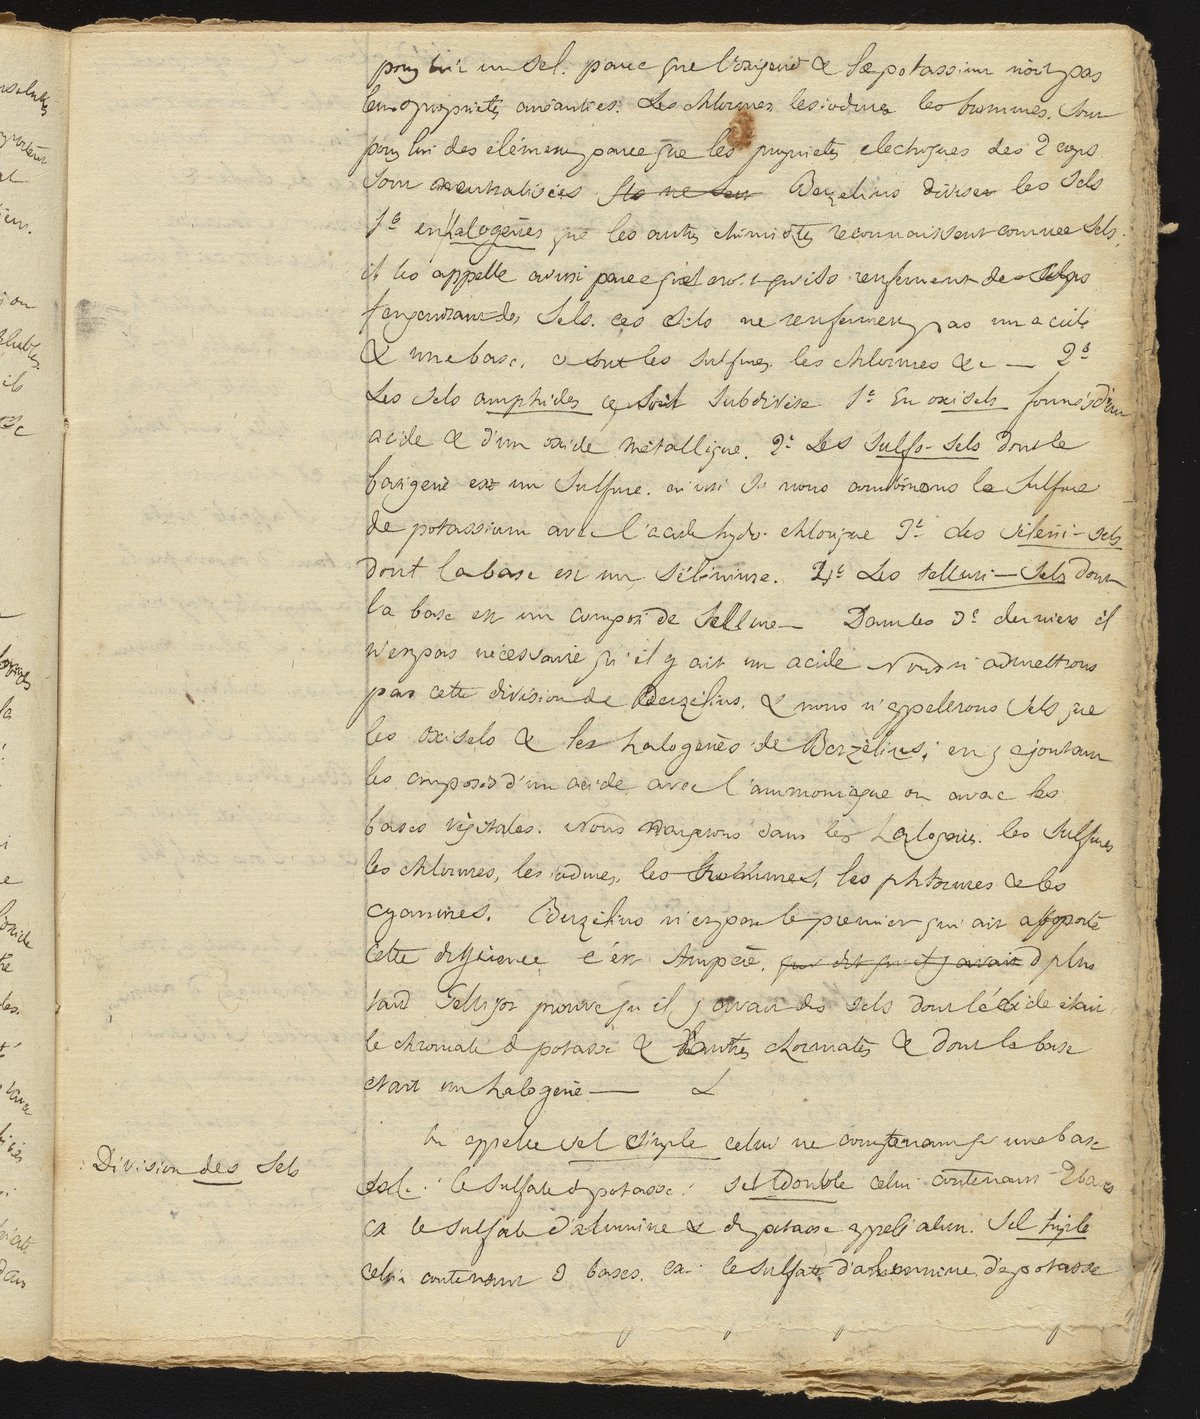 pour lui un sel. parce que l'oxigene & le potassium n'ont pas
leurs proprietés anéanties. Les chlorures les iodures les bromures. sont
pour lui des elémens parceque les proprietés electriques des 2 corps
sont neutralisées Ils ne sont Berzelius divise les sels
1° en halogènes que les autres chimistes reconnaissent comme sels;
il les appelle ainsi parce qu'ils renferment des corps
engendrant des sels. ces sels ne renferment pas un acide
& une base. ce sont les sulfures les chlorures &c — 2°
Les sels amphides ce subdivise 1° En oxisels formés d'un
acide & d'un oxide métallique. 2° Les sulfo-sels dont le
basigene est un sulfure. ainsi si nous combinons le sulfure
de potassium avec l'acide hydro-chlorique 3° des séléni-sels
dont la base est un séléniure. 4° Les telluri-sels dont
la base est un composé de Tellure — Dans les 3 derniers il
n'est pas nécessaire qu'il y ait un acide Nous n'admettrons
pas cette division de Berzélius, & nous n'appelerons sels que
les oxisels & les halogenès de Berzélius; en y ajoutant
les composés d'un acide avec l'ammoniaque ou avec les
bases végétales. Nous rangeons dans les halogènes. les sulfures
les chlorures, les iodures, les bromures, les phtorures & les
cyanures. Berzélius n'est pas le premier qui ait apporté
cette différence c'est Ampère. qui dit qu'il y avait & plus
tard prouve qu'il y avait des sels dont l'acide était
le chromate de potasse & d'autres chromates & dont la base
etait un halogene —
On appelle sel simple celui ne contenant qu'une base
Division des Sels
sal. : le sulfate de potasse: sel double celui contenant 2 bases
ex le sulfate d'alumine & de potasse appelé alun. Sel triple
celui contenant 3 bases. ex: le sulfate d'alumine, de potasse